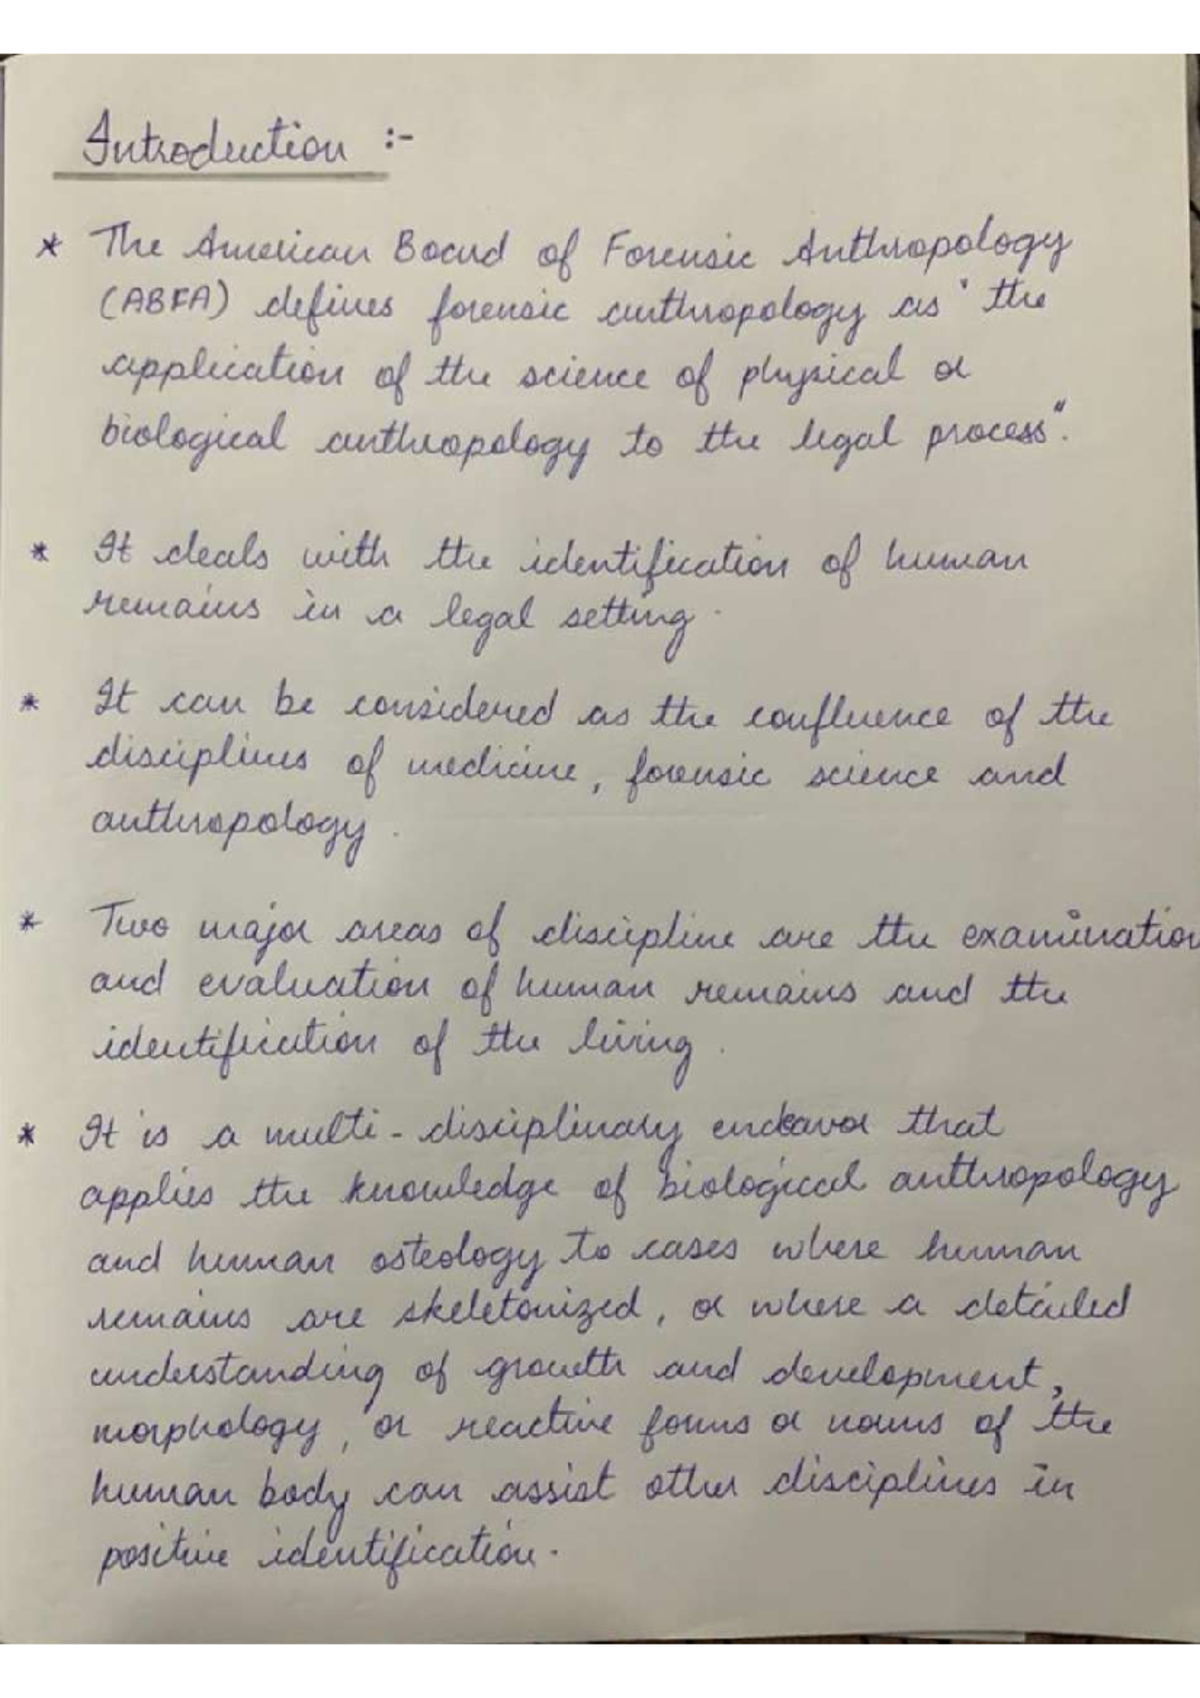 Introduction :-
* The American Board of Forensic Anthropology
(ABFA) defines forensic anthropology as ' the
application of the science of physical or
biological anthropology to the legal process".
* It deals with the identification of human
remains in a legal setting.
* It can be considered as the confluence of the
disciplines of medicine, forensic science and
anthropology.
* Two major areas of discipline are the examination
and evaluation of human remains and the
identification of the living.
* It is a multi-disciplinary endeavor that
applies the knowledge of biological anthropology
and human osteology to cases where human
remains are skeletonized, or where a detailed
understanding of growth and development,
morphology, or reactive forms or norms of the
human body can assist other disciplines in
positive identification.